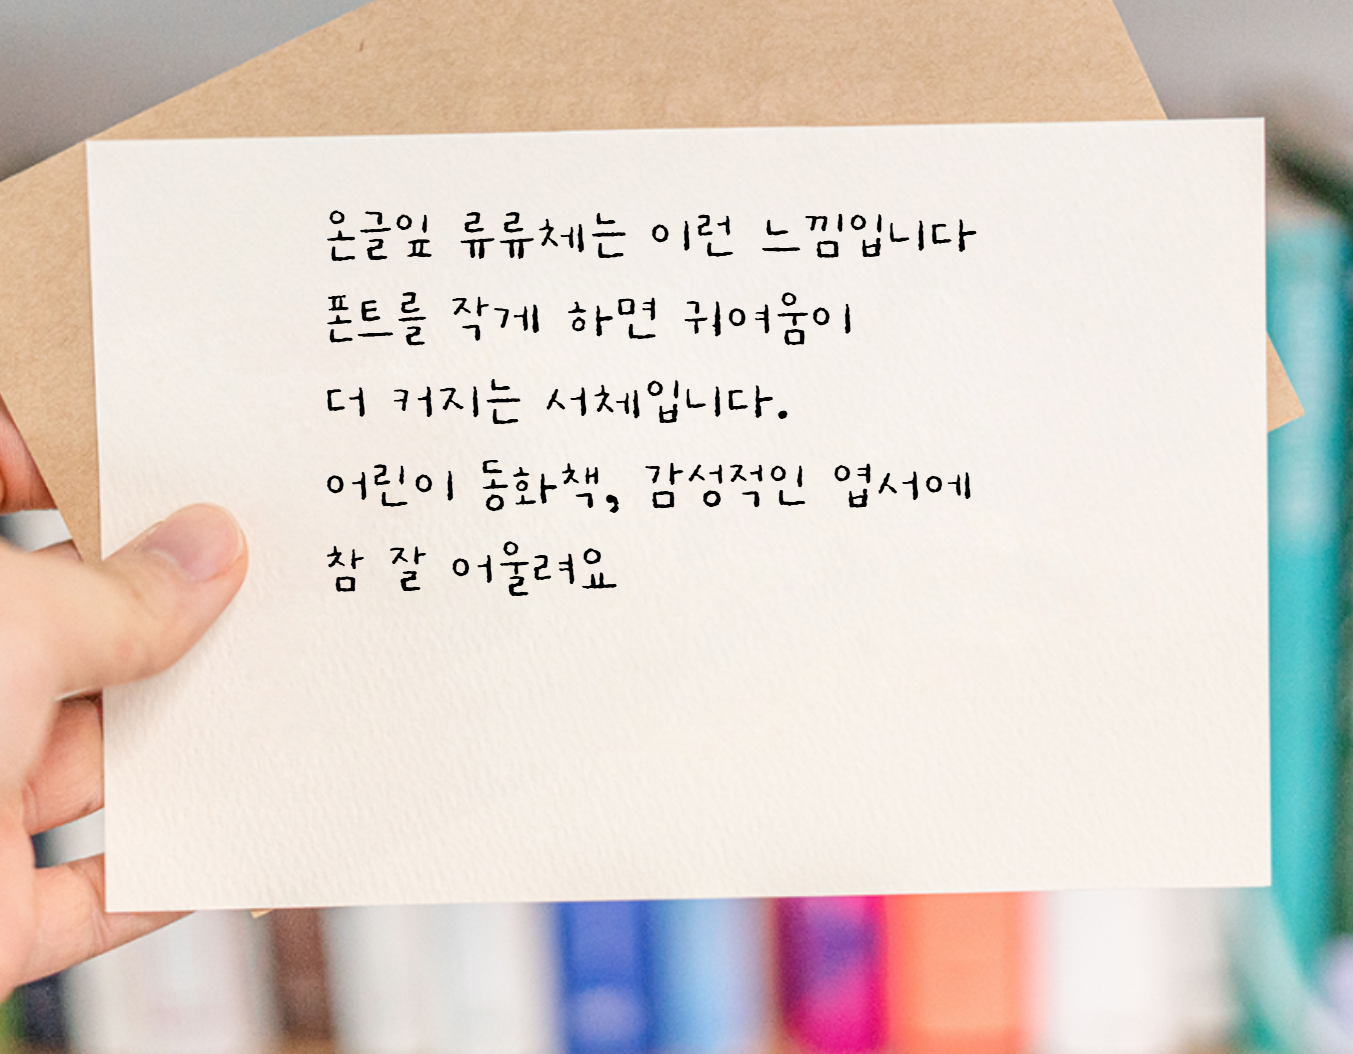 온글잎 류류체는 이런 느낌입니다
폰트를 작게 하면 귀여움이
더 커지는 서체입니다.
어린이 동화책, 감성적인 엽서에
참 잘 어울려요